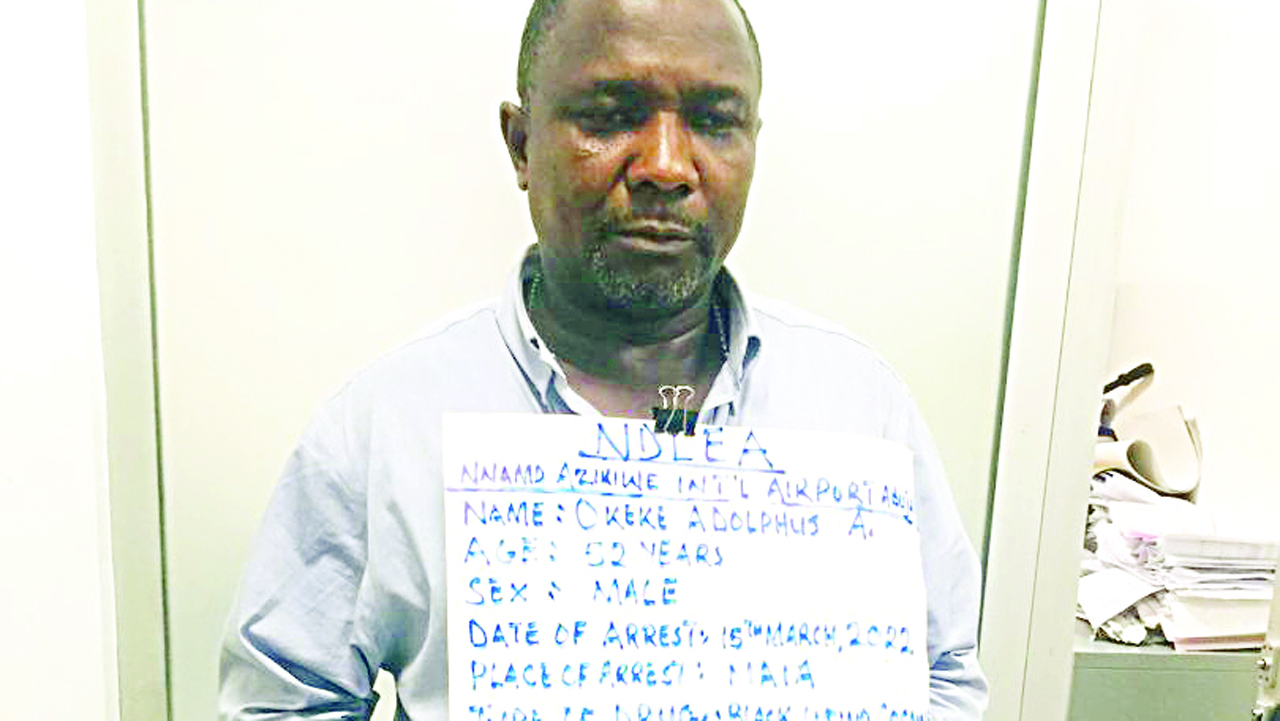 NDLEA
NNAMD AZIKIWE INT'L AIRPORT ABUJA
NAME: OKEKE ADOLPHUS A.
AGE: 52 YEARS
SEX: MALE
DATE OF ARREST: 15TH MARCH, 2022
PLACE OF ARREST: NAIA
TYPE OF DRUG: BLACK LIQUID